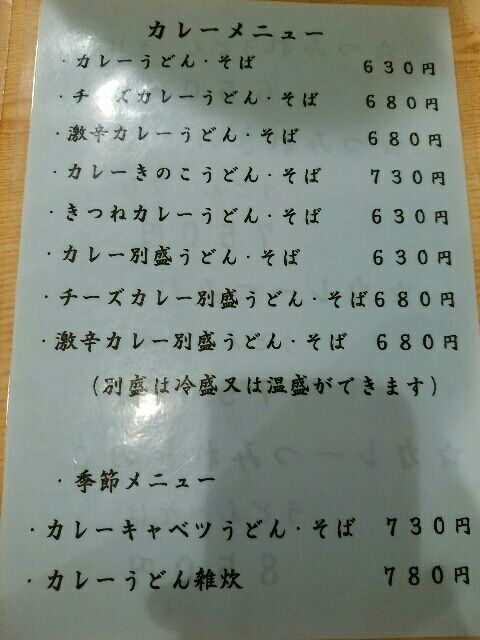 カレーメニュー
・カレーうどん・そば 630円
・チーズカレーうどん・そば 680円
・激辛カレーうどん・そば 680円
・カレーきのこうどん・そば 730円
・きつねカレーうどん・そば 630円
・カレー別盛うどん・そば 630円
・チーズカレー別盛うどん・そば 680円
・激辛カレー別盛うどん・そば 680円
(別盛は冷盛又は温盛ができます)
・季節メニュー
・カレーキャベツうどん・そば 730円
・カレーうどん雑炊 780円